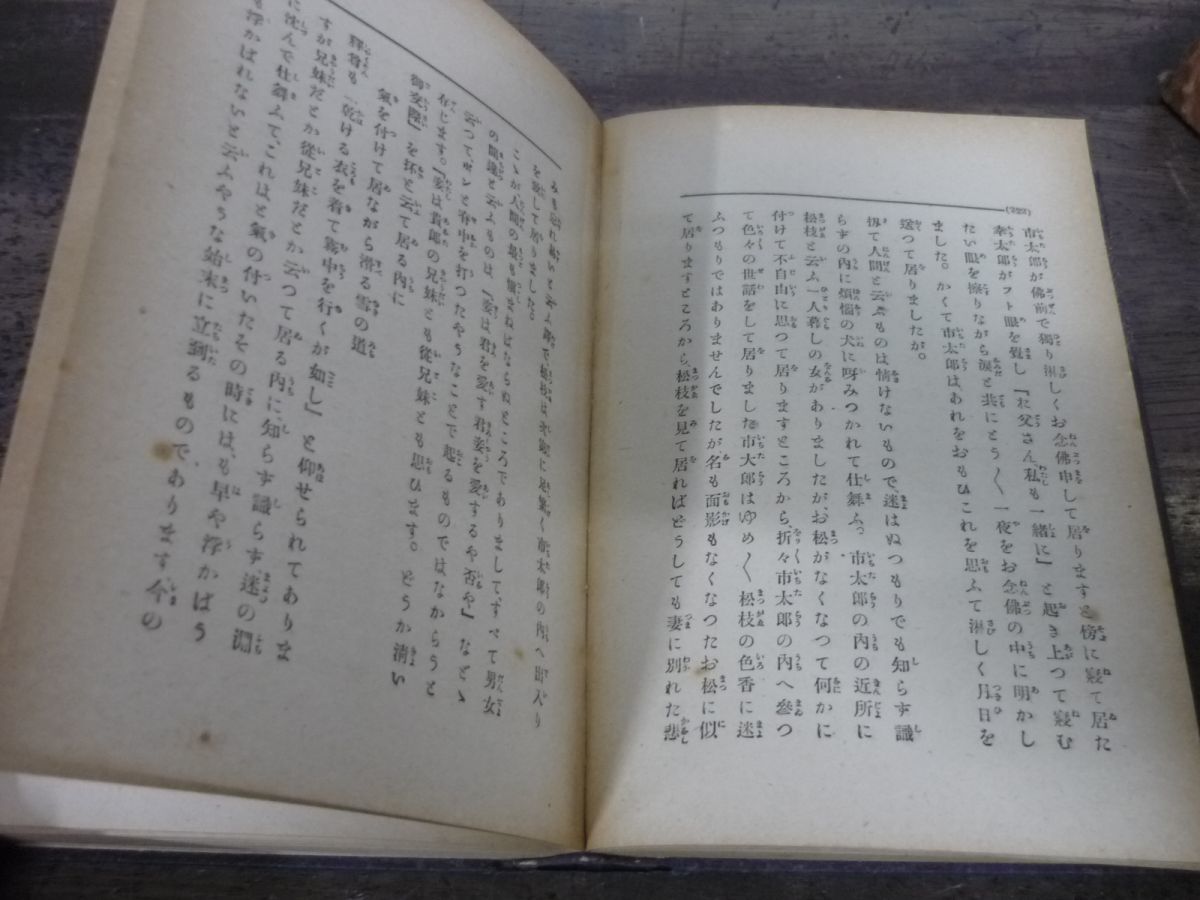 (222)
市太郎が佛前で獨り淋しくお念佛申して居りますと傍に寢て居た
幸太郎がフト眼を覺し「お父さん私も一緒に」と起き上つて寢む
たい眼を擦りながら淚と共にとう〱一夜をお念佛の中に明かし
ました。かくて市太郎はあれをおもひこれを思ふて淋しく月日を
送つて居りましたが。
扨て人間と云ふものは情けないもので、迷はぬつもりでも知らず識
らずの内に煩惱の犬に呀みつかれて仕舞ふ。市太郎の内の近所に
松枝と云ふ一人暮しの女がありましたが、お松がなくなつて何かに
付けて不自由に思つて居りますところから、折々市太郎の内へ參つ
て色々の世話をして居りました市太郎はゆめ〱松枝の色香に迷
ふつもりではありませんでしたが名も面影もなくなつたお松に似
て居りますところから、松枝を見て居ればどうしても妻に別れた悲
みも忘れ勝いと云ふ譯で松枝は次第に足繁く市太郎の內へ出入り
を致して居りました。
こゝが人間の最も愼まねばならぬところでありまして、すべて男女
の間違と云ふものは「妾は君を愛す君妾を愛するや否や」などゝ
云つて、ポンと脊中を打つたやうなことで起るものではなからうと
存じます。「妾は貴郎の兄妹とも從兄妹とも思ひます。どうか淸い
御交際」を抔と云て居る內に
氣を付けて居ながら滑る雪の道
釋尊も「乾ける衣を着て霧中を行くが如し」と仰せられてありま
すが兄妹だとか從兄妹だとか云つて居る內に、知らず識らず迷の淵
に沈んで仕舞ふて、これはと氣の付いたその時には、も早や浮かばう
も浮かばれないと云ふやうな始末に立到るものであります今の